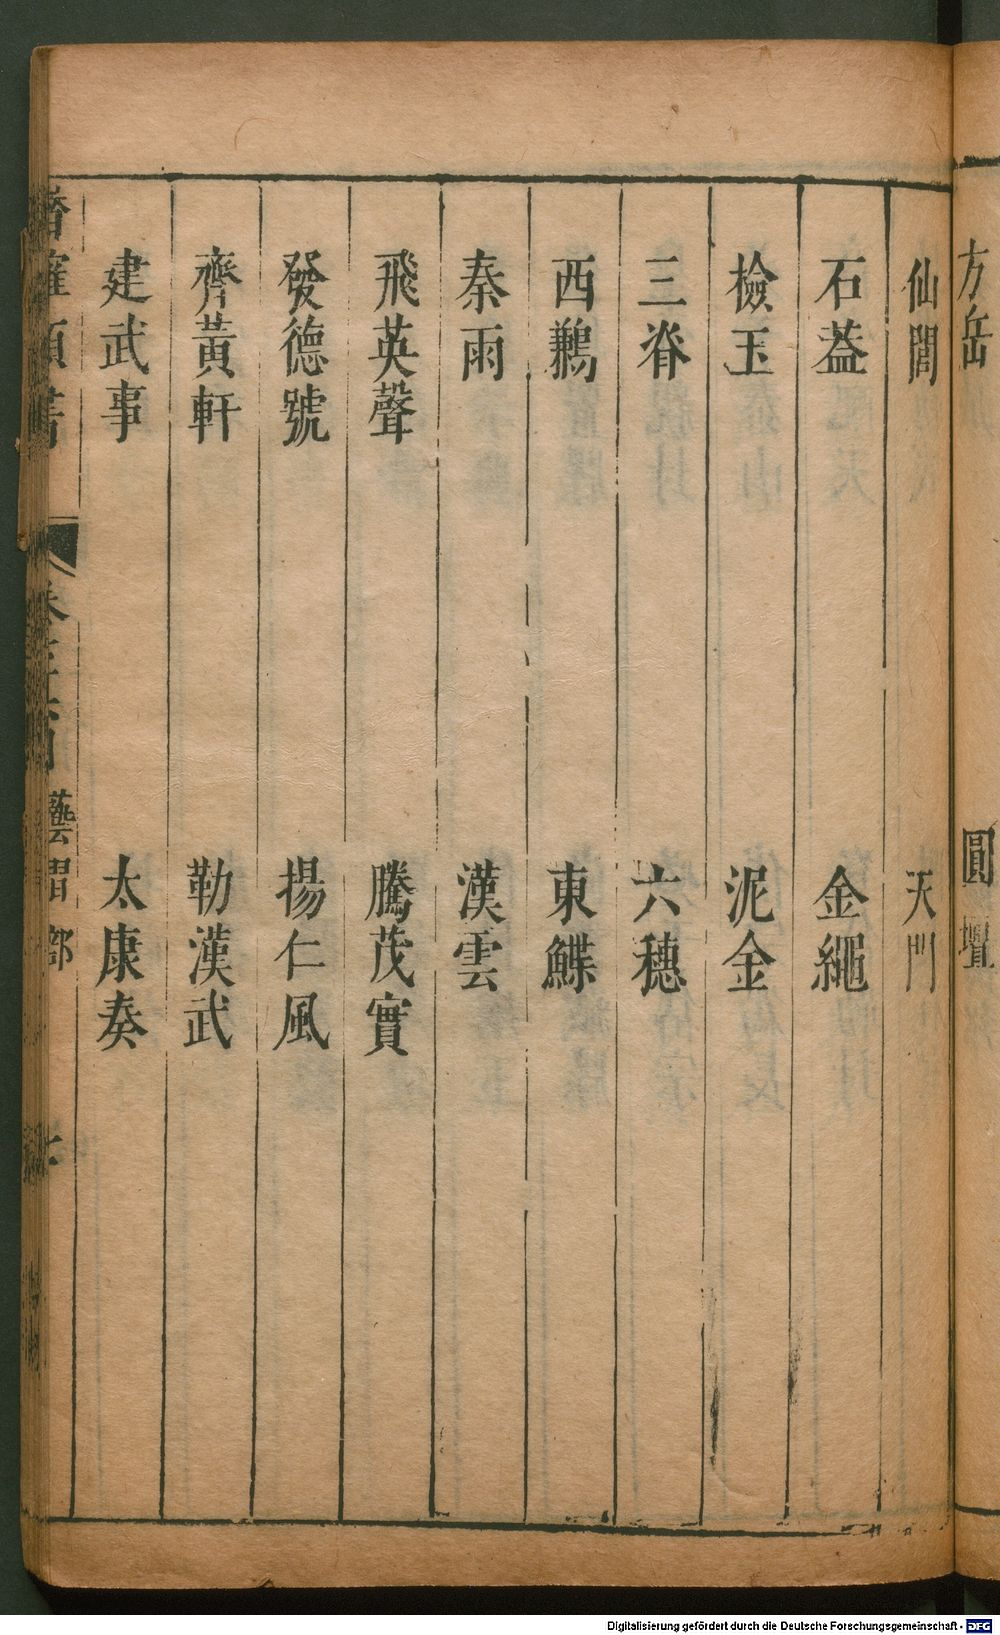 方岳　圓壇
仙閭　天門
石葢　金繩
檢玉　泥金
三脊　六穗
西鶼　東鰈
秦雨　漢雲
飛英聲　騰茂實
發德號　揚仁風
齊黃軒　勒漢武
建武事　太康奏
類書
藝習部
Digitalisierung gefördert durch die Deutsche Forschungsgemeinschaft - DFG